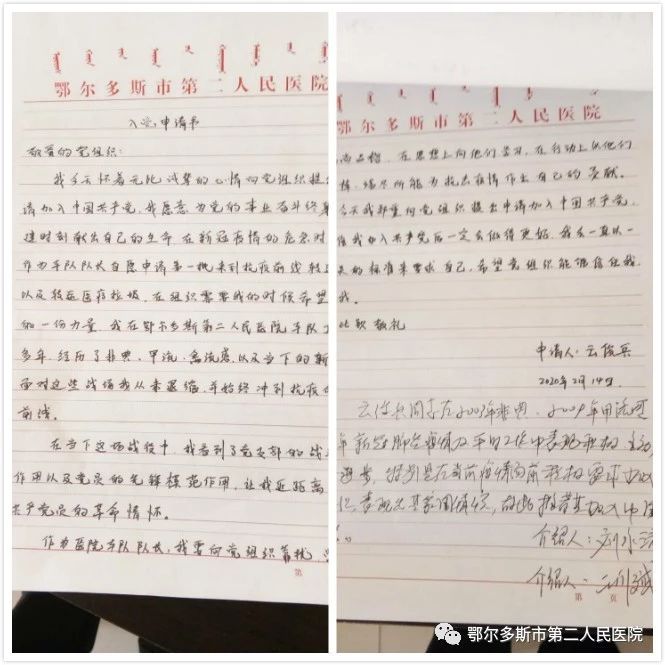 鄂尔多斯市第二人民医院
入党申请书
敬爱的党组织：
我今天怀着无比诚挚的心情向党组织提
请加入中国共产党，我愿意为党的事业奋斗终身
随时刻献出自己的生命，在新冠疫情的危急时
作为车队队长自愿申请第一批来到抗疫前线转运
以及转运医疗垃圾，在组织需要我的时候希望
的一份力量，我在鄂尔多斯第二人民医院车队工
多年，经历了非典，甲流，禽流感，以及当下的新
面对这些战场我从未退缩，并始终冲到抗疫的
前线。
在当下这场战役中，我看到了党支部的战
作用以及党员的先锋模范作用，让我近距离
共产党员的革命情怀。
作为医院车队队长，我要向党组织看扰，
第
鄂尔多斯市第二人民医院
尚品格，在思想上向他们学习，在行动上以他们
样，竭尽所能为抗击疫情作出自己的贡献。
今天我郑重向党组织提出申请加入中国共产党，
我加入共产党后一定会做得更好，我会一直以一
员的标准来要求自己，希望党组织能够信任我
我。
此致 敬礼
申请人：云俊兵
2020年2月14日
云俊兵同志在2003年非典、2009年甲流
年新冠肺炎疫情及平时工作中表现积极、主动
进步，特别是在当前疫情面前积极要求
表现尤其，故此推荐其加入中国
介绍人：刘永
介绍人：刘斌
第 页
鄂尔多斯市第二人民医院